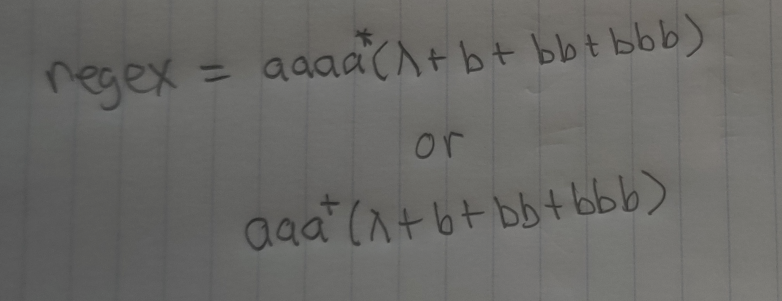 regex = aaaa*(λ+b+bb+bbb)
or
aaa⁺(λ+b+bb+bbb)